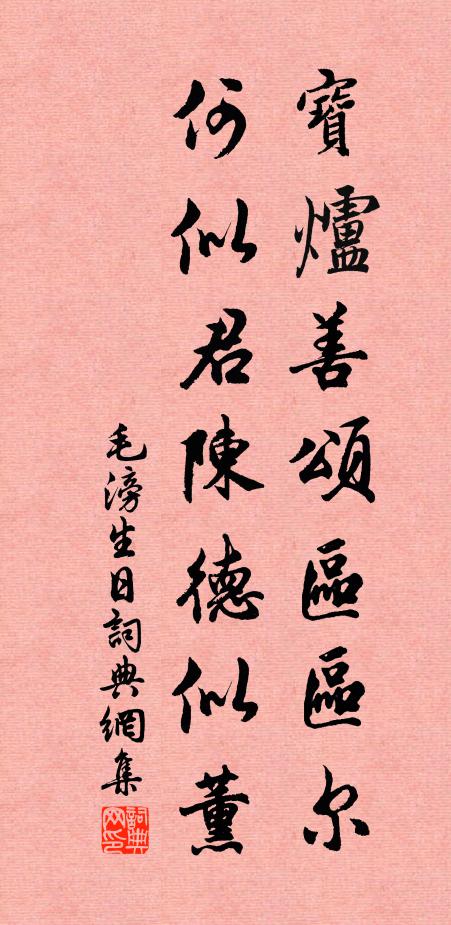 寶爐善頌區區尔
何似君陳德似薰
毛滂生日詞典網集
詞典网印